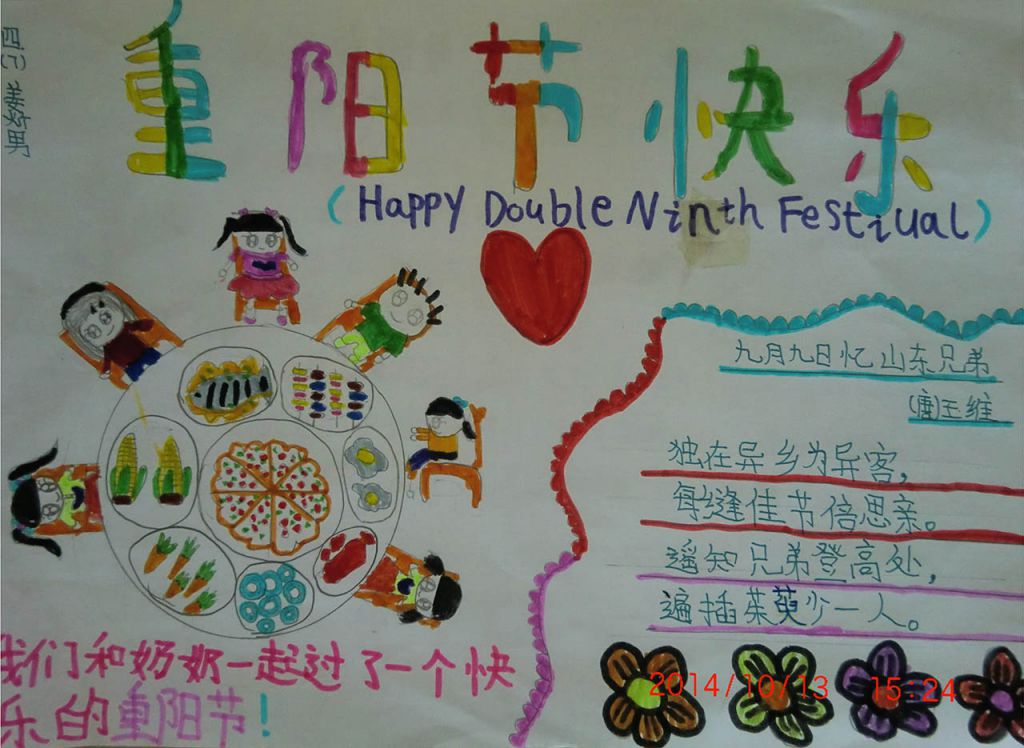 四.(7)
重阳节快乐
(Happy Double Ninth Festiual)
九月九日忆山东兄弟
(唐)王维
独在异乡为异客,
每缝佳节倍思亲。
遥知兄弟登高处,
遍插茱萸少一人。
我们和奶奶一起过了一个快
乐的重阳节!
2014/10/13 15:24